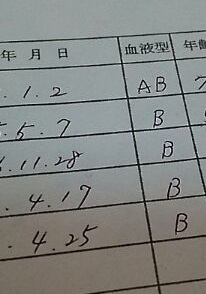 年 月 日 血液型 年齢
.1.2 AB
.5.7 B
.11.28 B
.4.17 B
.4.25 B